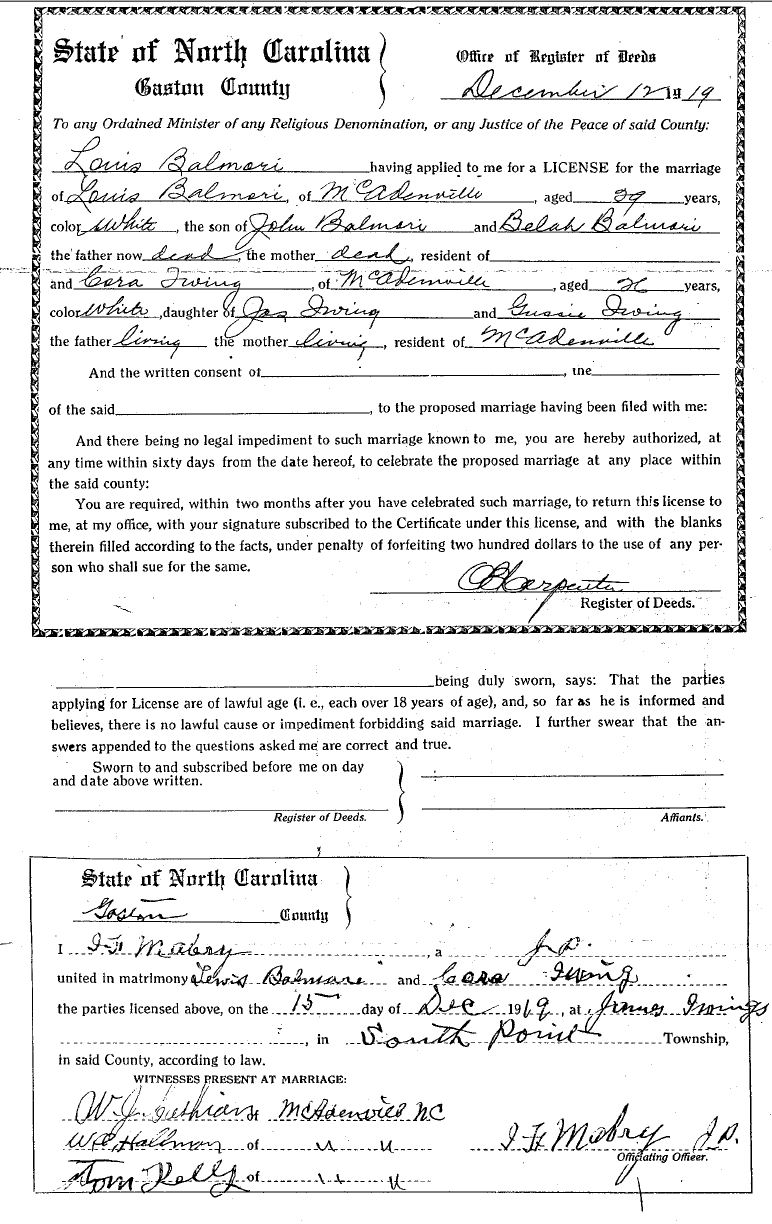 State of North Carolina
Gaston County
Office of Register of Deeds
December 12 1919
To any Ordained Minister of any Religious Denomination, or any Justice of the Peace of said County:
Louis Balmori having applied to me for a LICENSE for the marriage
of Louis Balmori, of McAdenville, aged 29 years,
color White, the son of John Balmori and Belah Balmori
the father now dead, the mother dead, resident of
and Cora Irwing, of McAdenville, aged years,
color White, daughter of Jas Irwing and Gussie Irwing
the father living the mother living, resident of McAdenville
And the written consent of , the
of the said , to the proposed marriage having been filed with me:
And there being no legal impediment to such marriage known to me, you are hereby authorized, at
any time within sixty days from the date hereof, to celebrate the proposed marriage at any place within
the said county:
You are required, within two months after you have celebrated such marriage, to return this license to
me, at my office, with your signature subscribed to the Certificate under this license, and with the blanks
therein filled according to the facts, under penalty of forfeiting two hundred dollars to the use of any per-
son who shall sue for the same.
Carpenter
Register of Deeds.
being duly sworn, says: That the parties
applying for License are of lawful age (i. e., each over 18 years of age), and, so far as he is informed and
believes, there is no lawful cause or impediment forbidding said marriage. I further swear that the an-
swers appended to the questions asked me are correct and true.
Sworn to and subscribed before me on day
and date above written.
Register of Deeds.
Affiants.
State of North Carolina
Gaston County
I Mabry, a J.P.
united in matrimony Lewis Balmare and Cora Irwing
the parties licensed above, on the 15 day of Dec 1919, at James Irwings
, in South Point Township,
in said County, according to law.
WITNESSES PRESENT AT MARRIAGE:
W. J. McAdenvies NC
Hallman of " "
Tom Kelly of " "
Mabry J.P.
Officiating Officer.